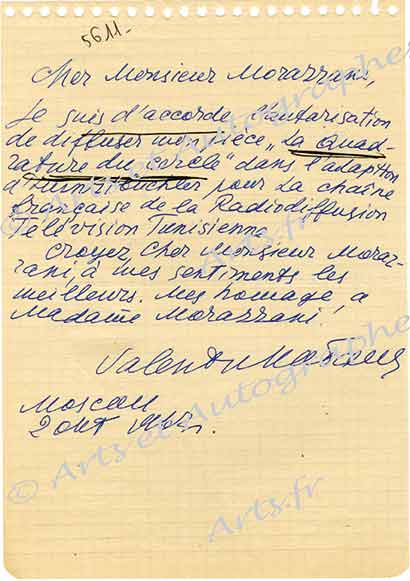 5611-
Cher Monsieur Morazzani,
Je suis d'accorde l'autorisation
de diffuser ma pièce „La Quad-
rature du cercle" dans l'adaption
d' pour la chaîne
française de la Radiodiffusion
Télévision Tunisienne
Croyez Cher Monsieur Moraz-
zani, à mes sentiments les
meilleurs. Mes homage à
Madame Morazzani!
Valentin
Moscou
2 окт
© Arts et Autographes
Arts.fr